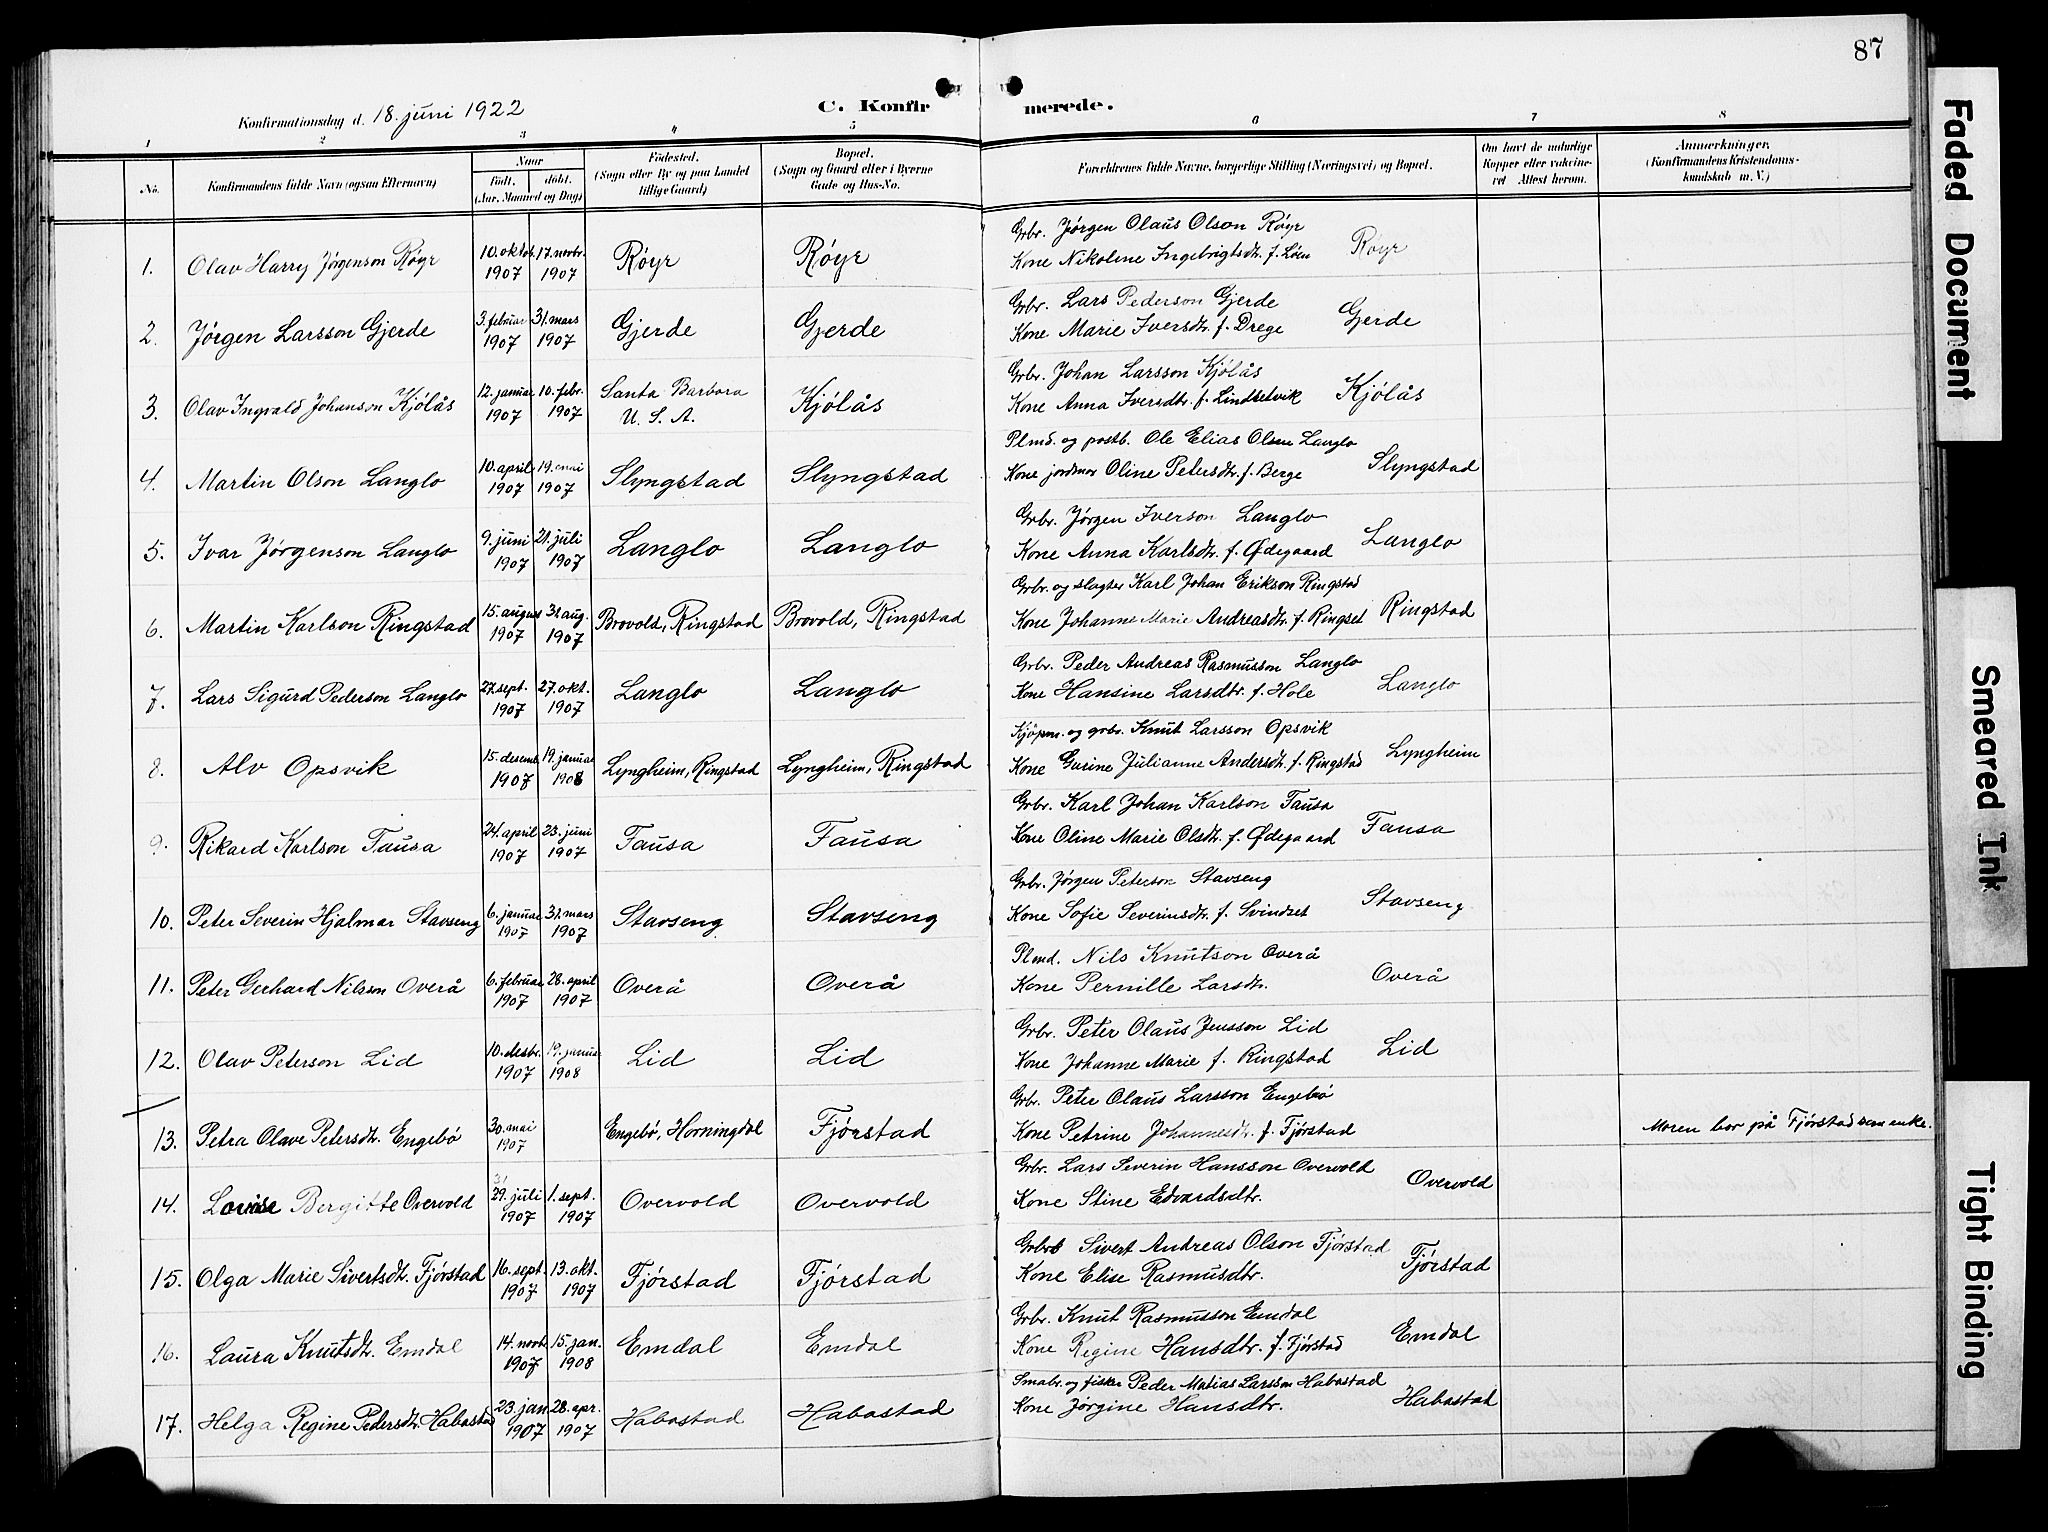 87
Konfirmationsdag d. 18. juni 1922
C. Konfirmerede.
1 2 3 4 5 6 7 8
No. Konfirmandens fulde Navn (ogsaa Efternavn) Naar Født. døbt. (Aar, Maaned og Dag) Fødested. (Sogn eller By og paa Landet tillige Gaard) Bopæl. (Sogn og Gaard eller i Byerne Gade og Hus-No. Forældrenes fulde Navne, borgerlige Stilling (Næringsvei) og Bopæl. Om havt de naturlige Kopper eller vaccineret. Attest herom. Anmerkninger. (Konfirmandens Kristendomskundskab m. V.)
1. Olav Harry Jørgenson Røyr 10. oktob. 1907 17. novbr. 1907 Røyr Røyr Grbr. Jørgen Olaus Olson Røyr Kone Nikoline Ingebrigtsdtr. f. Løen Røyr
2. Jørgen Larsson Gjerde 3. februar 1907 31. mars 1907 Gjerde Gjerde Grbr. Lars Pederson Gjerde Kone Marie Iversdtr. f. Drege Gjerde
3. Olav Ingvald Johanson Kjølås 12. januar 1907 10. febr. 1907 Santa Barbora U. S. A. Kjølås Grbr. Johan Larsson Kjølås Kone Anna Iversdtr. f. Lindsetvik Kjølås
4. Martin Olson Langlo 10. april 1907 19. mai 1907 Slyngstad Slyngstad Plmd. og postb. Ole Elias Olson Langlo Kone jordmor Oline Petersdtr. f. Berge Slyngstad
5. Ivar Jørgenson Langlo 9. juni 1907 21. juli 1907 Langlo Langlo Grbr. Jørgen Iverson Langlo Kone Anna Karlsdtr. f. Ødegaard Langlo
6. Martin Karlson Ringstad 15. august 1907 31. aug. 1907 Brovold, Ringstad Brovold, Ringstad Grbr. og slagter Karl Johan Erikson Ringstad Kone Johanne Marie Andreasdtr. f. Ringset Ringstad
7. Lars Sigurd Pederson Langlo 27. sept. 1907 27. okt. 1907 Langlo Langlo Grbr. Peder Andreas Rasmusson Langlo Kone Hansine Larsdtr. f. Hole Langlo
8. Alv Opsvik 15. desemb. 1907 19. januar 1908 Lyngheim, Ringstad Lyngheim, Ringstad Kjøpm. og grbr. Knut Larsson Opsvik Kone Gurine Julianne Andersdtr. f. Ringstad Lyngheim
9. Rikard Karlson Tausa 24. april 1907 23. juni 1907 Tausa Tausa Grbr. Karl Johan Karlson Tausa Kone Oline Marie Olsdtr. f. Ødegaard Tausa
10. Peter Severin Hjalmar Stavseng 6. januar 1907 31. mars 1907 Stavseng Stavseng Grbr. Jørgen Peterson Stavseng Kone Sofie Severinsdtr. f. Svindset Stavseng
11. Peter Gerhard Nilsson Overå 6. februar 1907 28. april 1907 Overå Overå Plmd. Nils Knutson Overå Kone Pernille Larsdtr. Overå
12. Olav Peterson Lid 10. desbr. 1907 19. januar 1908 Lid Lid Grbr. Peter Olaus Jensson Lid Kone Johanne Marie f. Ringstad Lid
13. Petra Olave Petersdtr. Engebø 30. mai 1907 Engebø, Horningdal Fjørstad Grbr. Peter Olaus Larsson Engebø Kone Petrine Johannesdtr. f. Fjørstad Moren bor på Fjørstad som enke.
14. Lovise Bergitte Overvold 29. juli 1907 1. sept. 1907 Overvold Overvold Grbr. Lars Severin Hansson Overvold Kone Stine Edvardsdtr. Overvold
15. Olga Marie Sivertsdtr. Fjørstad 16. sept. 1907 13. okt. 1907 Fjørstad Fjørstad Grbr. Sivert Andreas Olson Fjørstad Kone Elise Rasmusdtr. Fjørstad
16. Laura Knutsdtr. Emdal 14. novb. 1907 15. jan. 1908 Emdal Emdal Grbr. Knut Rasmusson Emdal Kone Regine Hansdtr. f. Fjørstad Emdal
17. Helga Regine Pedersdtr. Habostad 23. jan 1907 28. apr. 1907 Habostad Habostad Smabr. og fisker Peder Matias Larsson Habostad Kone Jørgine Hansdtr. Habostad
Faded Document
Smeared Ink
Tight Binding